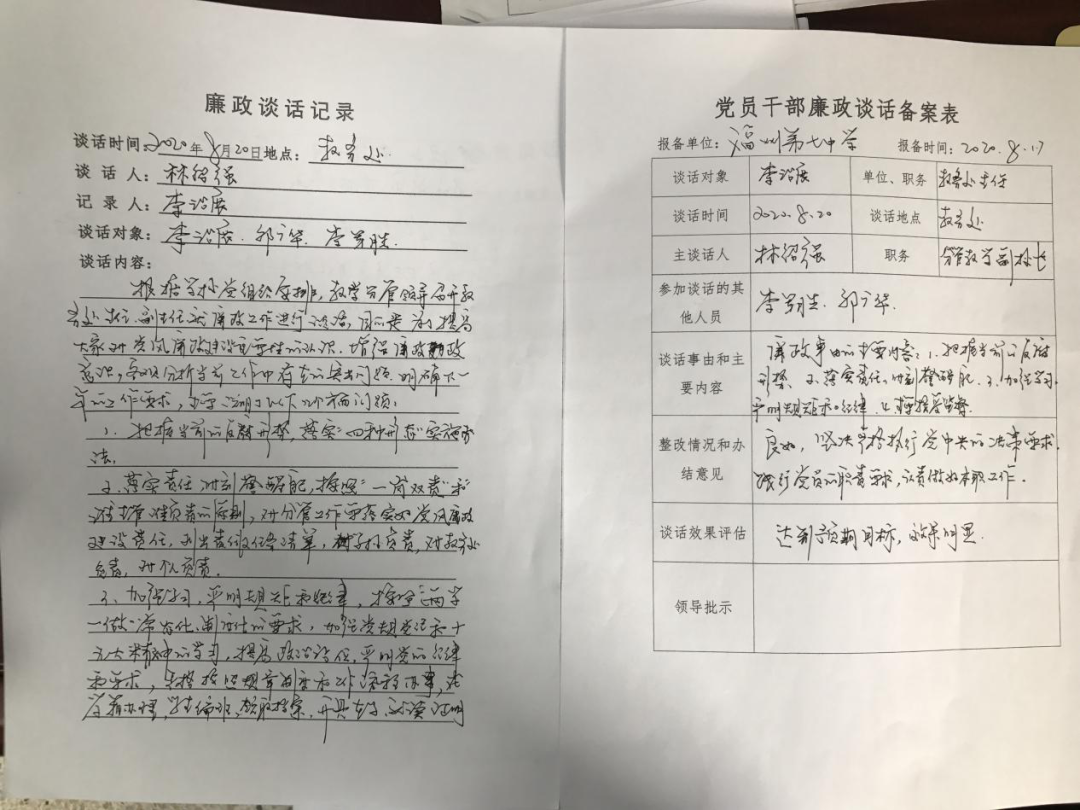 廉政谈话记录
谈话时间：2020年8月20日地点：教务处
谈话人：林绍强
记录人：李治展
谈话对象：李治展、郭六华、李第胜
谈话内容：
根据学校党组织安排，教学分管领导召开教
务处主任、副主任就廉政工作进行谈话，目的是为了提高
大家对党风廉政建设重要性的认识，增强廉政勤政
意识，客观分析当前工作中存在的突出问题，明确下一
年的工作要求，
1、把握当前的反腐形势，落实"四种形态"实施办
法。
2、落实责任，时刻警醒，按照"一岗双责"和
谁主管谁负责的原则，对分管工作要落实好党风廉政
建设责任，列出责任清单，对
负责，对
3、加强学习，严明规矩和纪律，按照"两学
一做"常态化、制度化的要求，加强党规党纪和十
九大精神的学习，提高政治责任，严明党的纪律
和要求，严格按照规章制度和工作流程办事，
学籍办理，编班，开具
党员干部廉政谈话备案表
报备单位：福州第七中学 报备时间：2020.8.17
谈话对象 李治展 单位、职务 教务处主任
谈话时间 2020.8.20 谈话地点 教务处
主谈话人 林绍强 职务 分管教学副校长
参加谈话的其
他人员
谈话事由和主
要内容
廉政事由的主要内容：1、把握当前的反腐
形势，2、落实责任，时刻警醒，3、加强学习，
严明规矩和纪律，
整改情况和办
结意见
良好，坚决严格执行党中央的决策要求，
践行党员的职责要求，认真做好本职工作。
谈话效果评估 达到预期目标，效果明显
领导批示